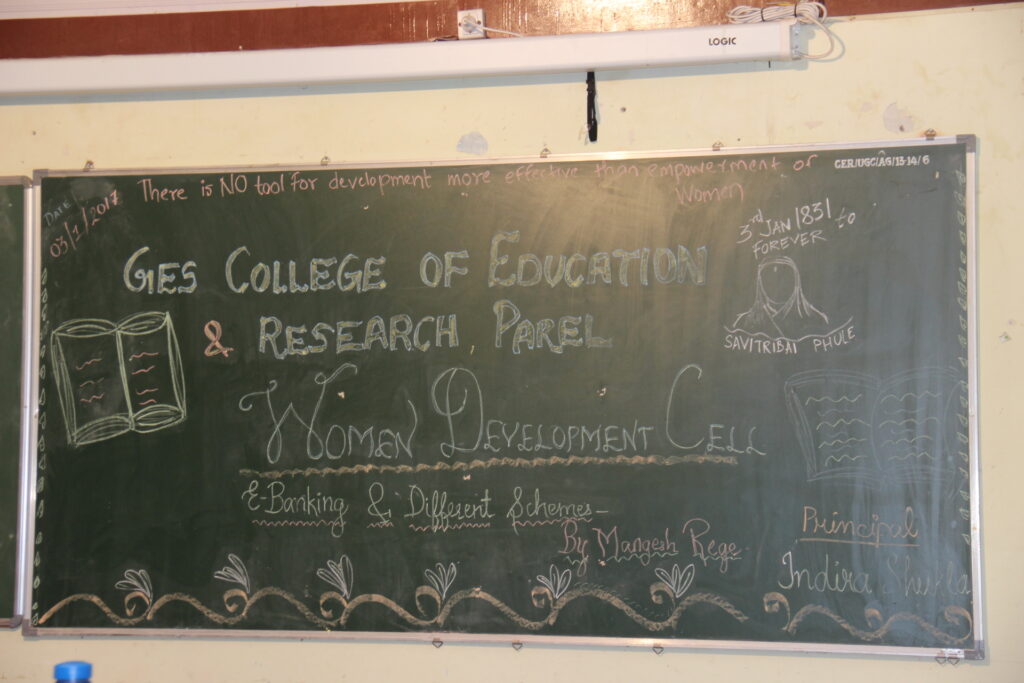 LOGIC
CER/UGC/AG/13-14/6
DATE
03/1/2017
There is NO tool for development more effective than empowerment of
Women
3rd JAN 1831 to
FOREVER
SAVITRIBAI PHULE
GES COLLEGE OF EDUCATION
& RESEARCH, PAREL
WOMEN DEVELOPMENT CELL
E-Banking & Different Schemes-
By Mangesh Rege
Principal
Indira Shukla